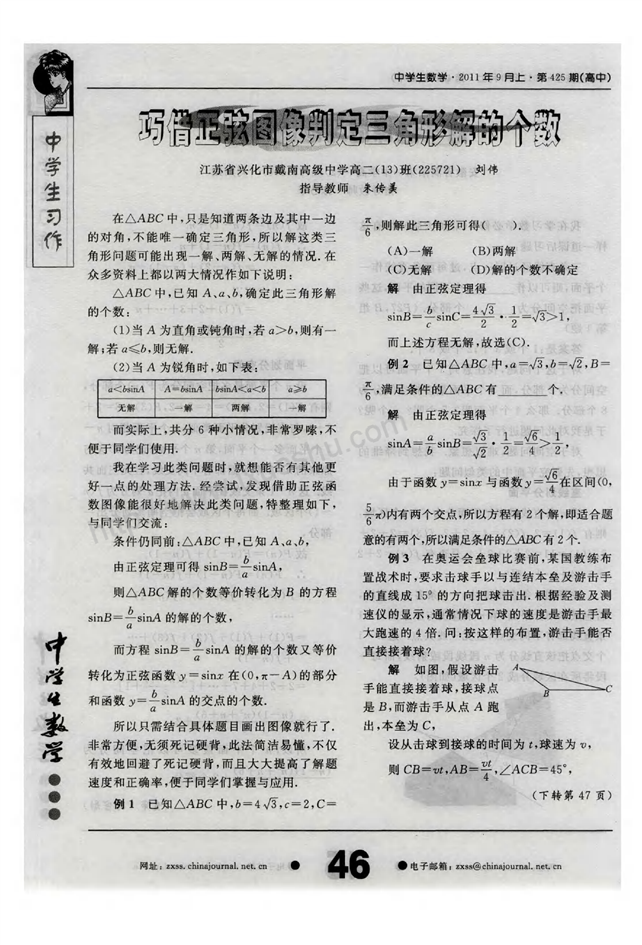 中学生数学·2011年9月上·第425期(高中)
中学生习作
巧借正弦图像判定三角形解的个数
江苏省兴化市戴南高级中学高二(13)班(225721) 刘伟
指导教师 朱传美
在△ABC中,只是知道两条边及其中一边
的对角,不能唯一确定三角形,所以解这类三
角形问题可能出现一解、两解、无解的情况.在
众多资料上都以两大情况作如下说明:
△ABC中,已知A、a、b,确定此三角形解
的个数:
(1)当A为直角或钝角时,若a>b,则有一
解;若a≤b,则无解.
(2)当A为锐角时,如下表:
a<bsinA A=bsinA bsinA<a<b a≥b
无解 一解 两解 一解
而实际上,共分6种小情况,非常罗嗦,不
便于同学们使用.
我在学习此类问题时,就想能否有其他更
好一点的处理方法.经尝试,发现借助正弦函
数图像能很好地解决此类问题,特整理如下,
与同学们交流:
条件仍同前:△ABC中,已知A、a、b,
由正弦定理可得 sinB=b/a sinA,
则△ABC解的个数等价转化为B的方程
sinB=b/a sinA的解的个数,
而方程 sinB=b/a sinA的解的个数又等价
转化为正弦函数y=sinx在(0,π−A)的部分
和函数y=b/a sinA的交点的个数.
所以只需结合具体题目画出图像就行了.
非常方便,无须死记硬背,此法简洁易懂,不仅
有效地回避了死记硬背,而且大大提高了解题
速度和正确率,便于同学们掌握与应用.
例1 已知△ABC中,b=4√3,c=2,C=
π/6,则解此三角形可得( ).
(A)一解 (B)两解
(C)无解 (D)解的个数不确定
解 由正弦定理得
sinB=b/c sinC=4√3/2·1/2=√3>1,
而上述方程无解,故选(C).
例2 已知△ABC中,a=√3,b=√2,B=
π/6,满足条件的△ABC有 个.
解 由正弦定理得
sinA=a/b sinB=√3/√2·1/2=√6/4>1/2,
由于函数y=sinx与函数y=√6/4在区间(0,
5/6π)内有两个交点,所以方程有2个解,即适合题
意的有两个,所以满足条件的△ABC有2个.
例3 在奥运会垒球比赛前,某国教练布
置战术时,要求击球手以与连结本垒及游击手
的直线成15°的方向把球击出.根据经验及测
速仪的显示,通常情况下球的速度是游击手最
大跑速的4倍.问:按这样的布置,游击手能否
直接接着球?
解 如图,假设游击
手能直接接着球,接球点
是B,而游击手从点A跑
出,本垒为C,
A
B
C
设从击球到接球的时间为t,球速为v,
则CB=vt,AB=vt/4,∠ACB=45°,
(下转第47页)
中学生数学
网址:zxss.chinajournal.net.cn ● 46 ●电子邮箱:zxss@chinajournal.net.cn